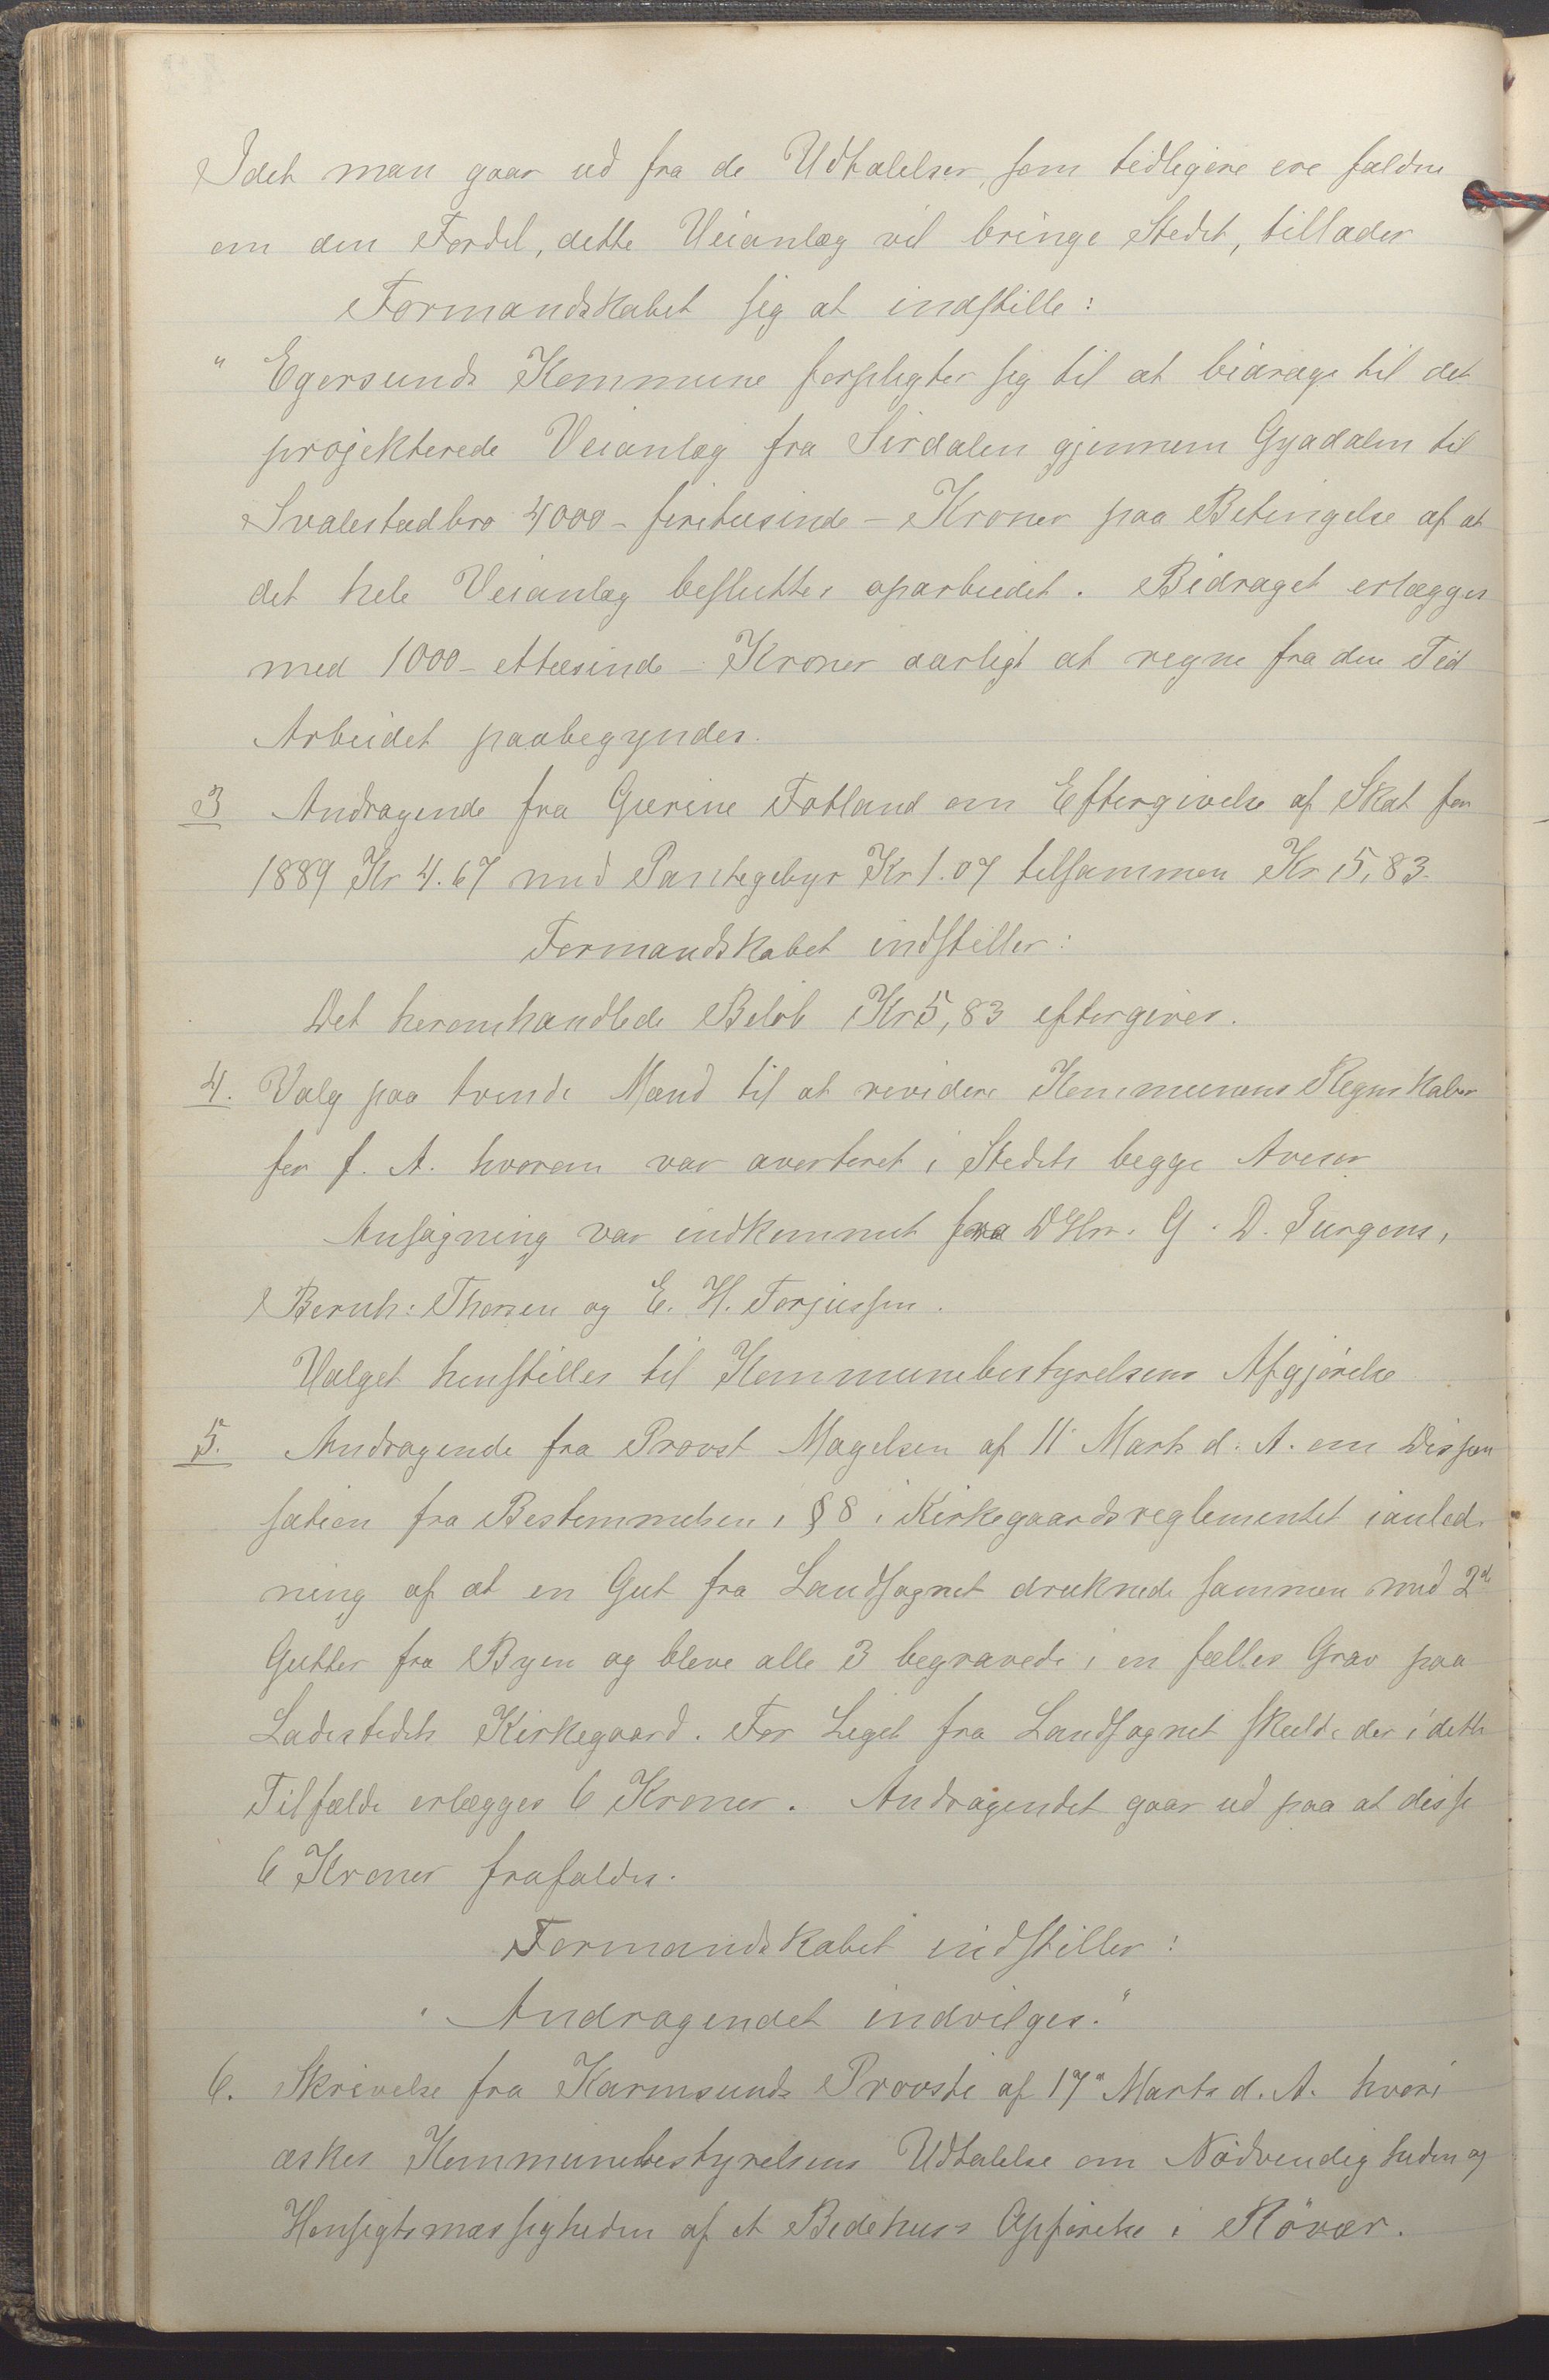 Idet man gaar ud fra de Udtalelser, som tidligere ere faldne
om den Fordel, dette Veianlæg vil bringe Stedet, tillader
Formandskabet sig at indstille:
" Egersunds Kommune forpligter sig til at bidrage til det
projekterede Veianlæg fra Sirdalen gjennem Gyadalen til
Svalestadbro 4000 - firetusinde - Kroner paa Betingelse af at
det hele Veianlæg besluttes oparbeidet. Bidraget erlægges
med 1000 - ettusinde - Kroner aarligt at regne fra den Tid
Arbeidet paabegyndes.
3 Andragende fra Gurine Fotland om Eftergivelse af Skat for
1889 Kr 4.67 med Pantegebyr Kr 1.07 tilsammen Kr 5,83.
Formandskabet indstiller:
Det heromhandlede Beløb Kr 5,83 eftergives.
4. Valg paa tvende Mænd til at revidere Kommunens Regnskaber
for f. A. hvorom var averteret i Stedets begge Aviser
Ansøgning var indkommet fra DHrr. G. D. Jurgens,
Bernh: Thorsen og E. H. Torjussen.
Valget henstilles til Kommunebestyrelsens Afgjørelse
5. Andragende fra Provst Magelsen af 11 Marts d. A. om Dispen
sation fra Bestemmelsen i § 8 i Kirkegaardsreglementet ianled-
ning af at en Gut fra Landsognet druknede sammen med 2de
Gutter fra Byen og bleve alle 3 begravede i en fælles Grav paa
Ladestedets Kirkegaard. For Liget fra Landsognet skulde der i dette
Tilfælde erlægges 6 Kroner. Andragendet gaar ud paa at disse
6 Kroner frafaldes.
Formandskabet indstiller:
" Andragendet indvilges."
6. Skrivelse fra Karmsunds Provsti af 17de Marts d. A. hvori
æskes Kommunebestyrelsens Udtalelse om Nødvendigheden og
Hensigtsmæssigheden af et Bedehuss Opførelse i Røvær.